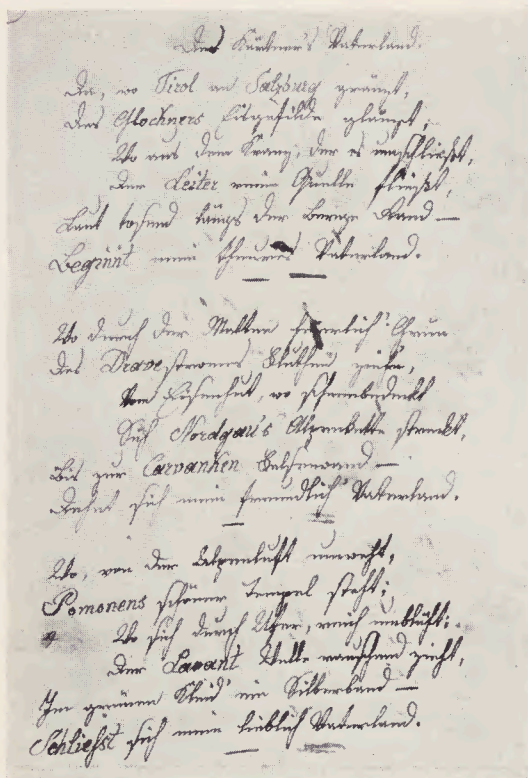 Des Kärtner's Vaterland.
Da, wo Tirol an Salzburg gränzt,
Des Glockners Eisgefilde glänzt;
Wo aus dem Kranz, der es umschließt,
Der Leiter reine Quelle fließt,
Laut tosend längs der Berge Rand —
Beginnt mein theures Vaterland.
Wo durch der Matten herrlich' Grün
Des Dravestromes Fluthen ziehn,
Vom Eisenhut, wo schneebedeckt
Sich Nordgau's Alpenkette streckt,
Bis zur Carvanken Felsenwand —
Dehnt sich mein freundlich' Vaterland.
Wo, von der Alpenluft umweht,
Pomonens schönster Tempel steht;
Wo sich durch Ufer, reich umblüht;
Der Lavant Welle rauschend zieht,
Im grünen Kleid' ein Silberband —
Schließt sich mein lieblich Vaterland.